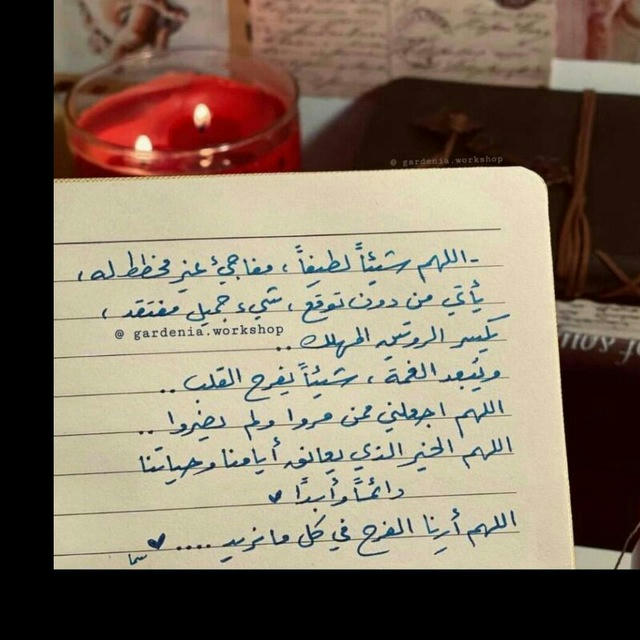 @ gardenia.workshop
- اللهم شيئاً لطيفاً ، مفاجئ غير مخطط له ،
يأتي من دون توقع ، شيء جميل مفتقد ،
@ gardenia.workshop
يكسر الروتين المهلك ..
ويُبعد الغمة ، شيئاً يفرح القلب ..
اللهم اجعلني ممن مروا ولم يضروا ..
اللهم الخير الذي يعانق أيامنا وحياتنا
دائماً وأبداً ♥
اللهم أرنا الفرح في كل ما نريد .... ♥